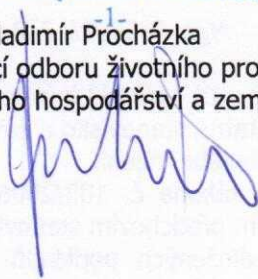 -1-
ladimír Procházka
cí odboru životního pro
ho hospodářství a zem